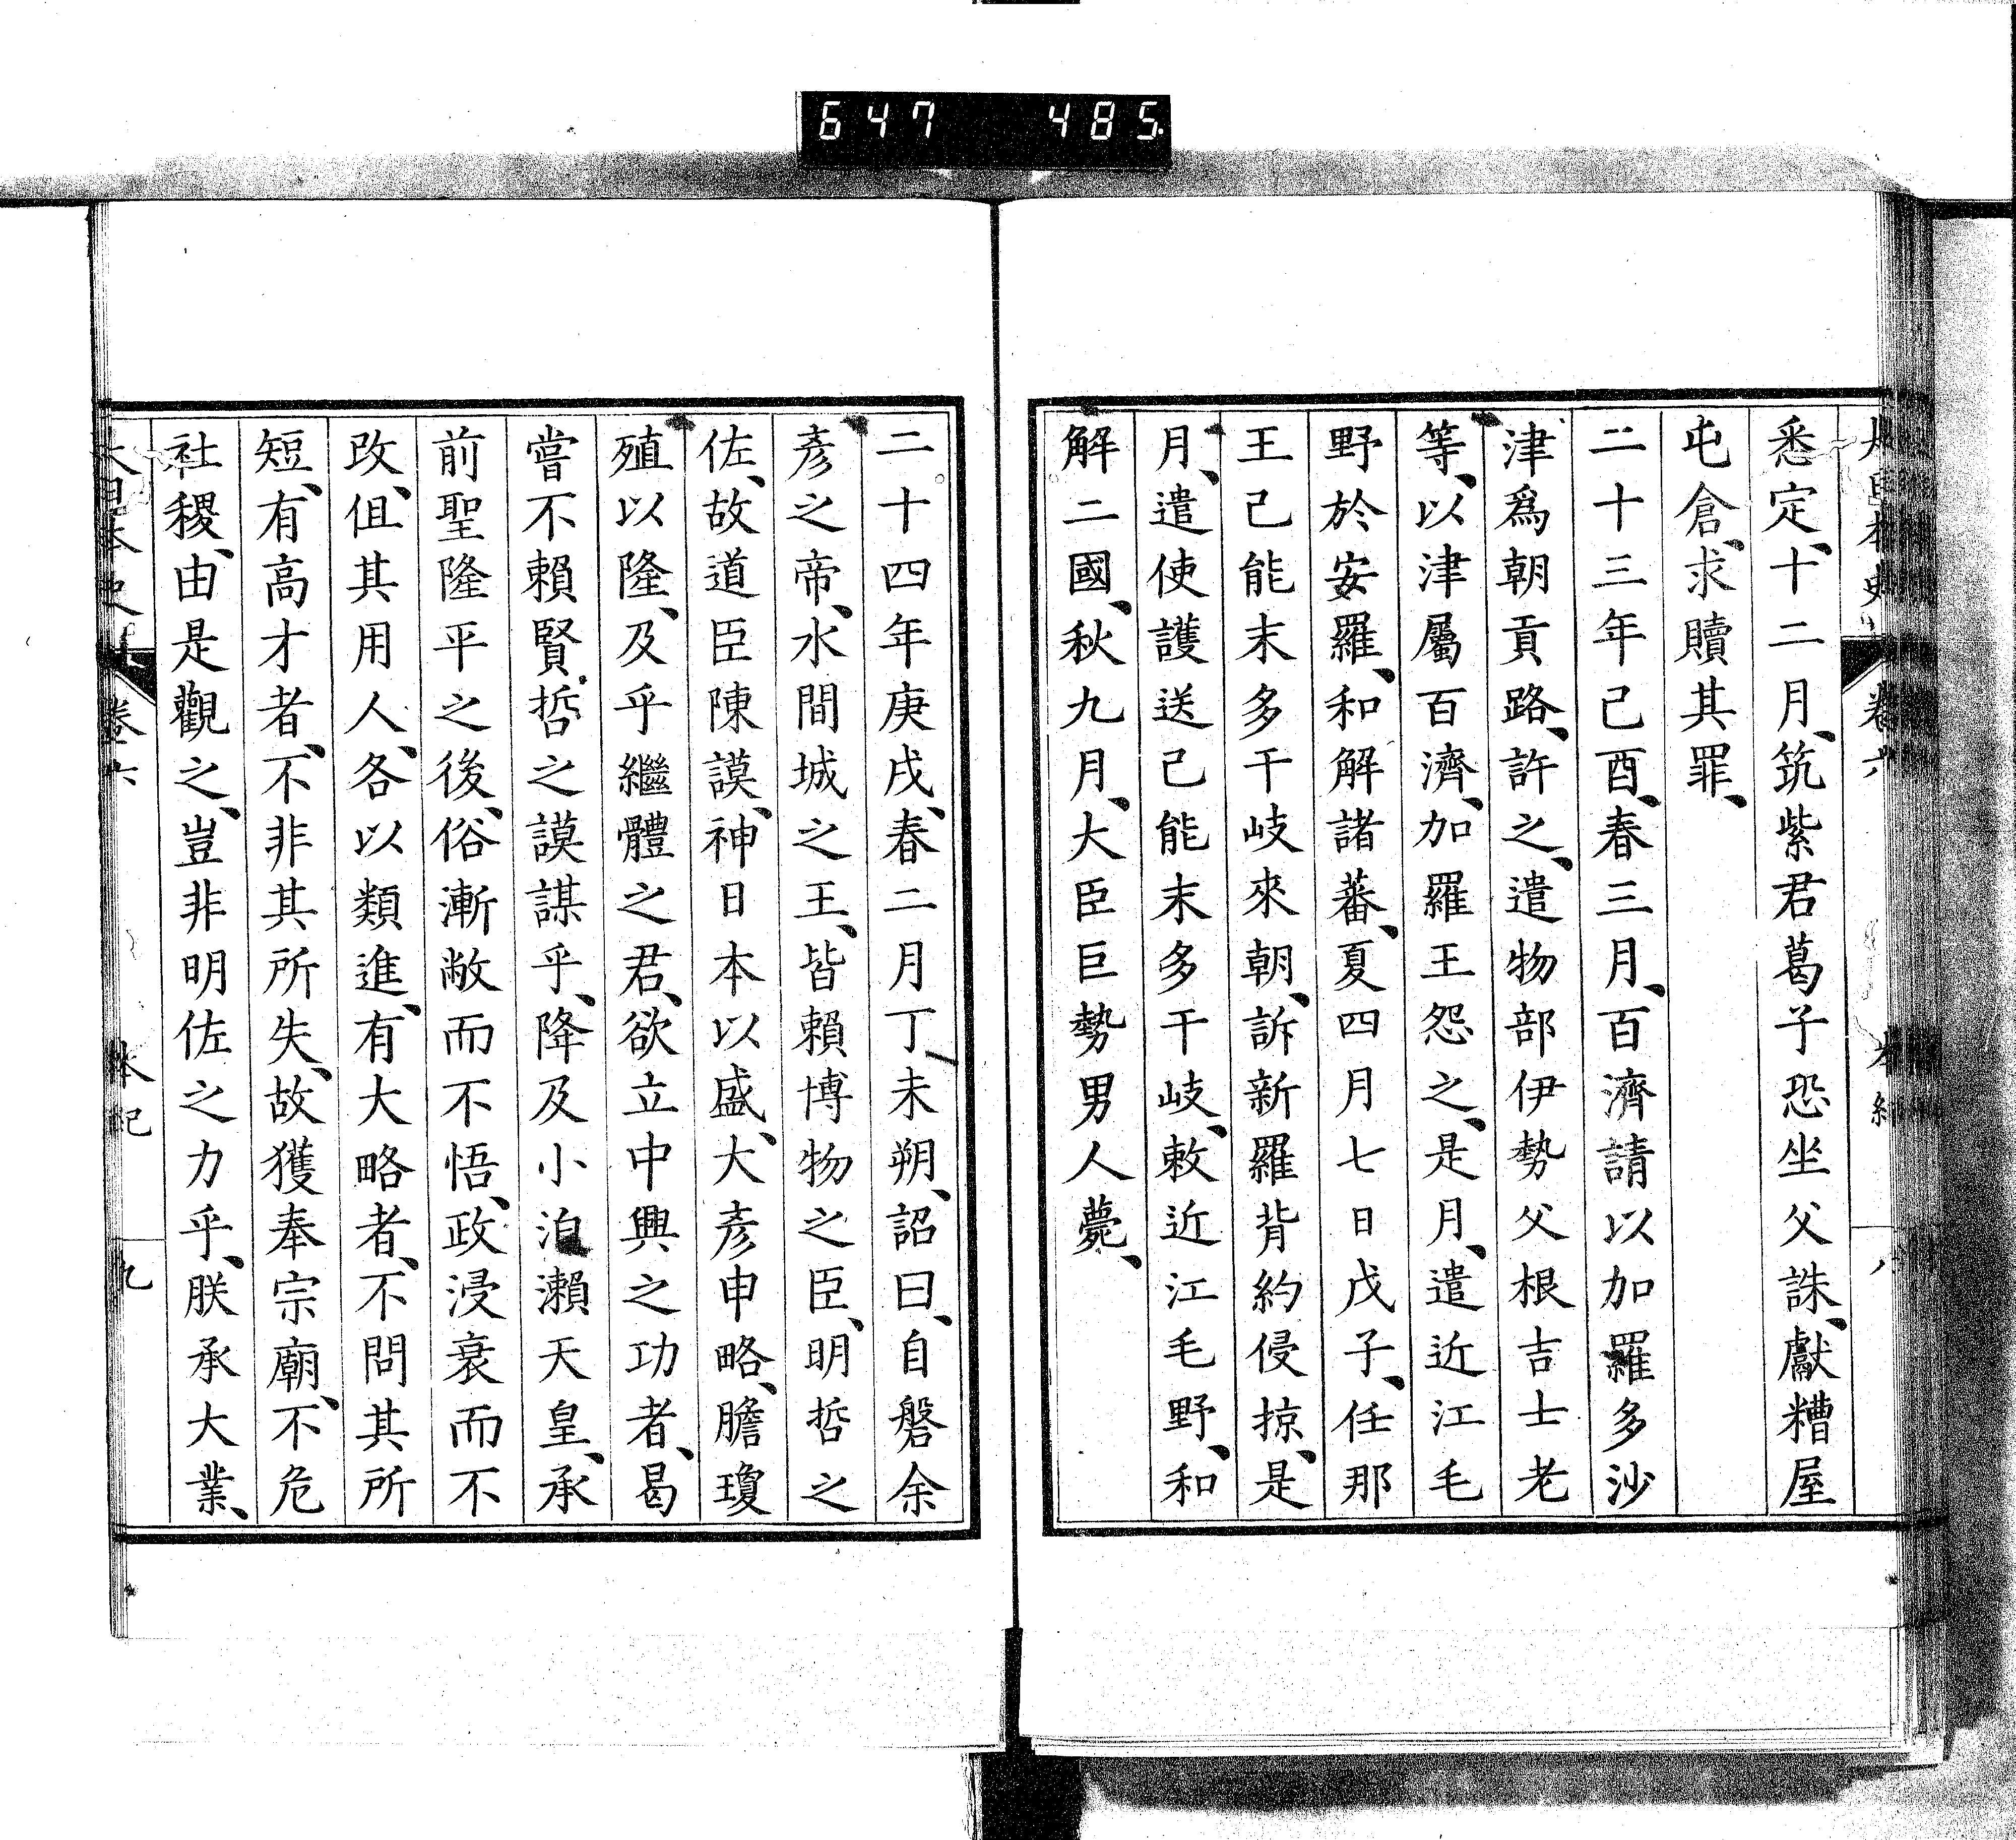 647 485
大日本史 卷六 本紀 八
悉定、十二月、筑紫君葛子恐坐父誅、獻糟屋
屯倉、求贖其罪、
二十三年己酉、春三月、百濟請以加羅多沙
津爲朝貢路、許之、遣物部伊勢父根吉士老
等、以津屬百濟、加羅王怨之、是月、遣近江毛
野於安羅、和解諸蕃、夏四月七日戊子、任那
王己能末多干岐來朝、訴新羅背約侵掠、是
月、遣使護送己能末多干岐、敕近江毛野、和
解二國、秋九月、大臣巨勢男人薨、
二十四年庚戌、春二月丁未朔、詔曰、自磐余
彥之帝、水間城之王、皆賴博物之臣、明哲之
佐、故道臣陳謨、神日本以盛、大彥申略、膽瓊
殖以隆、及乎繼體之君、欲立中興之功者、曷
嘗不賴賢哲之謨謀乎、降及小泊瀨天皇、承
前聖隆平之後、俗漸敝而不悟、政浸衰而不
改、但其用人、各以類進、有大略者、不問其所
短、有高才者、不非其所失、故獲奉宗廟、不危
社稷、由是觀之、豈非明佐之力乎、朕承大業、
大日本史 卷六 本紀 九